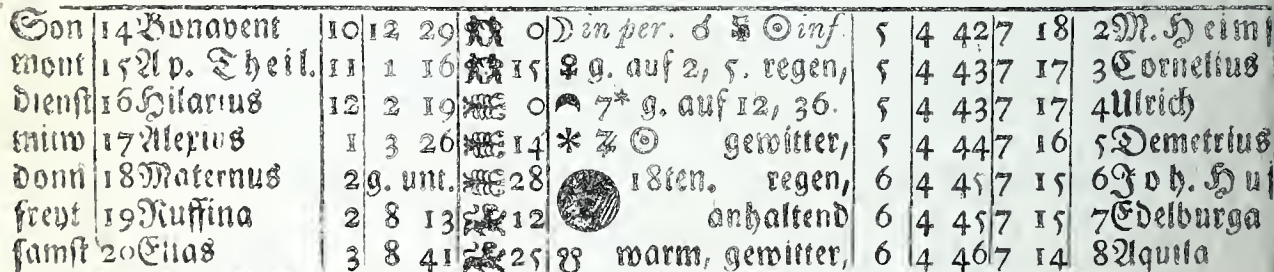 Son 14 Bonavent 10 12 29 0 ☽ in per. ☌ ☿ ☉ inf. 5 4 42 7 18 2 M. Heims
mont 15 Ap. Theil. 11 1 16 15 ♀ g. auf 2, 5. regen, 5 4 43 7 17 3 Cornelius
dienst 16 Hilarius 12 2 19 0 7* g. auf 12, 36. 5 4 43 7 17 4 Ulrich
mitw 17 Alexius 1 3 26 14 ⚹ ♃ ☉ gewitter, 5 4 44 7 16 5 Demetrius
donn 18 Maternus 2 g. unt. 28 18ten. regen, 6 4 45 7 15 6 Joh. Hus
freyt 19 Ruffina 2 8 13 12 anhaltend 6 4 45 7 15 7 Edelburga
samst 20 Elias 3 8 41 25 ☋ warm, gewitter, 6 4 46 7 14 8 Aquila